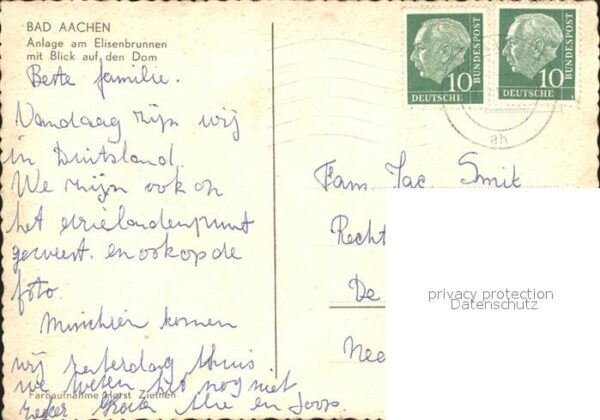 BAD AACHEN
Anlage am Elisenbrunnen
mit Blick auf den Dom
Beste familie.
Vandaag zijn wij
in Duitsland.
We zijn ook op
het drielandenpunt
geweest. en ook op de
foto.
Misschien komen
wij zaterdag thuis
we weten het nog niet
zeker Groeten en Joop
Farbaufnahme Horst Ziethen
10
DEUTSCHE
BUNDESPOST
10
DEUTSCHE
BUNDESPOST
ah
Fam Jac. Smit
Recht
De
Nee
privacy protection
Datenschutz